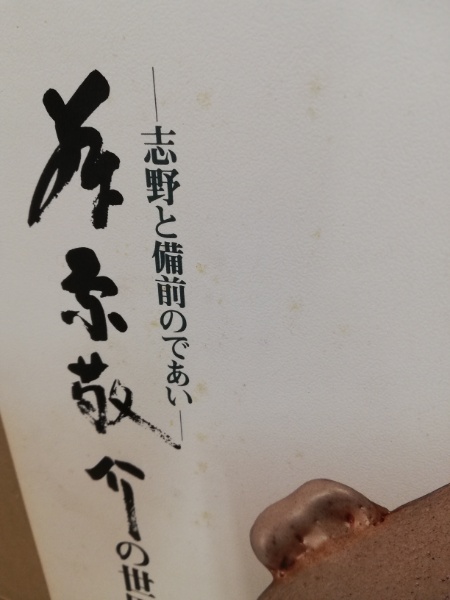 ―志野と備前のであい―
藤原敬介の世